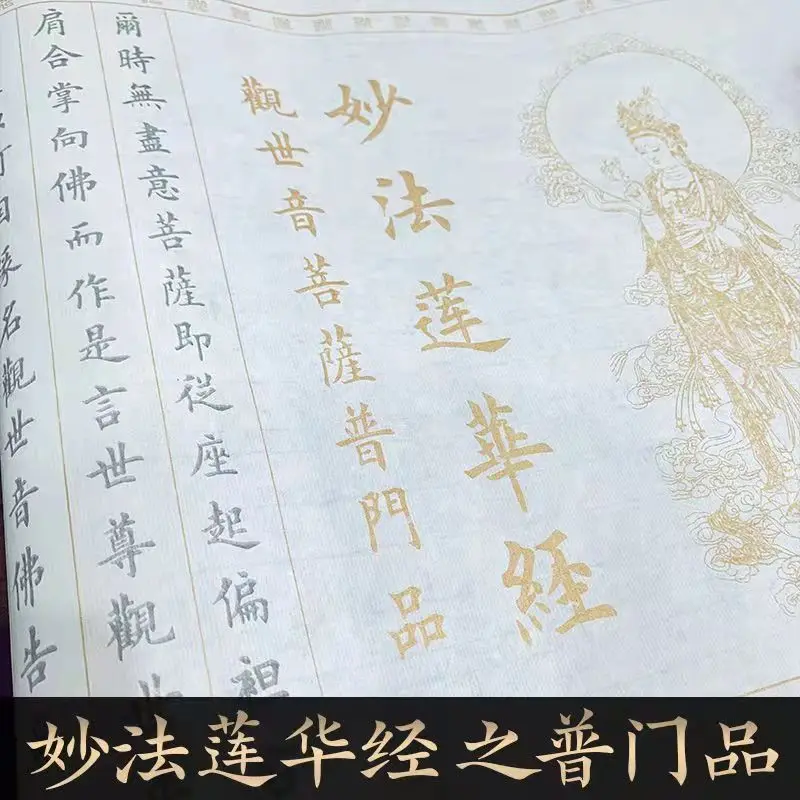 妙法莲華經
觀世音菩薩普門品
爾時無盡意菩薩即從座起偏袒
肩合掌向佛而作是言世尊觀世
何因緣名觀世音佛告
妙法莲华经之普门品